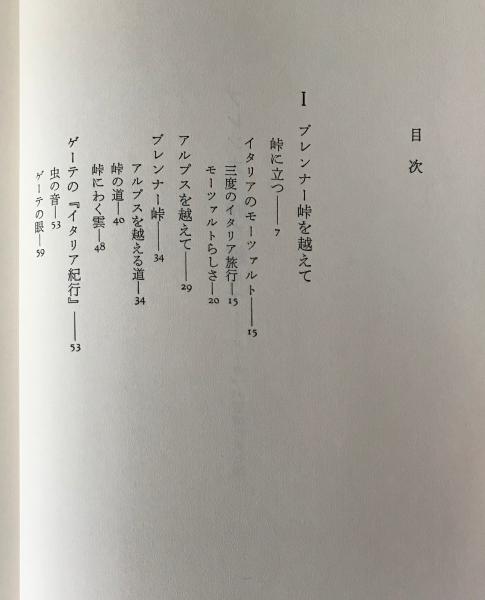 目次
I ブレンナー峠を越えて
峠に立つ——7
イタリアのモーツァルト——15
三度のイタリア旅行—15
モーツァルトらしさ—20
アルプスを越えて——29
ブレンナー峠——34
アルプスを越える道—34
峠の道—40
峠にわく雲—48
ゲーテの『イタリア紀行』——53
虫の音—53
ゲーテの眼—59